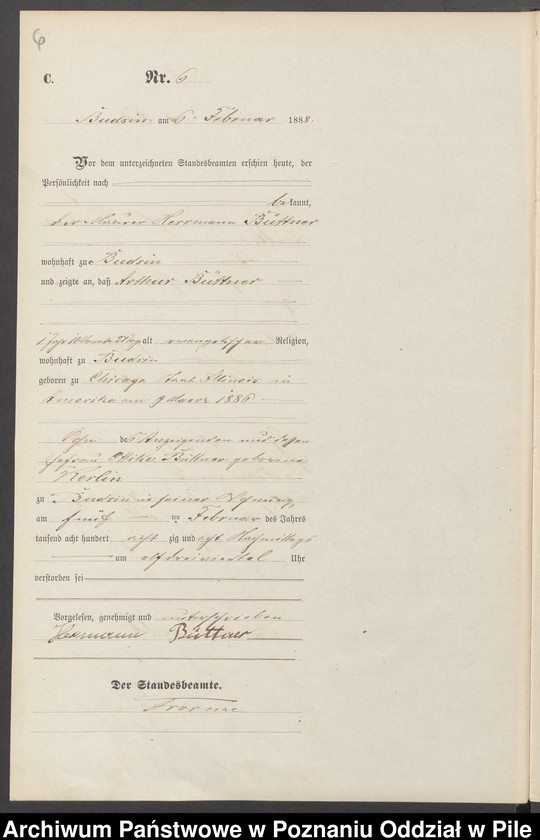 6
C. Nr. 6
Budsin am 6. Februar 1888.
Vor dem unterzeichneten Standesbeamten erschien heute, der
Persönlichkeit nach
bekannt,
der Maurer Herrmann Büttner
wohnhaft zu Budsin
und zeigte an, daß Arthur Büttner
1 Jahr 10 Monate 27 Tage alt evangelischer Religion,
wohnhaft zu Budsin
geboren zu Chicago Staat Illinois in
Amerika am 9 Maerz 1886
Sohn des Anzeigenden und dessen
Ehefrau Ottilie Büttner geborene
Kerlin
zu Budsin in seiner Wohnung
am fünf ten Februar des Jahres
tausend acht hundert acht zig und acht Nachmittags
um elf dreiviertel Uhr
verstorben sei
Vorgelesen, genehmigt und unterschrieben
Hermann Büttner
Der Standesbeamte.
Archiwum Państwowe w Poznaniu Oddział w Pile